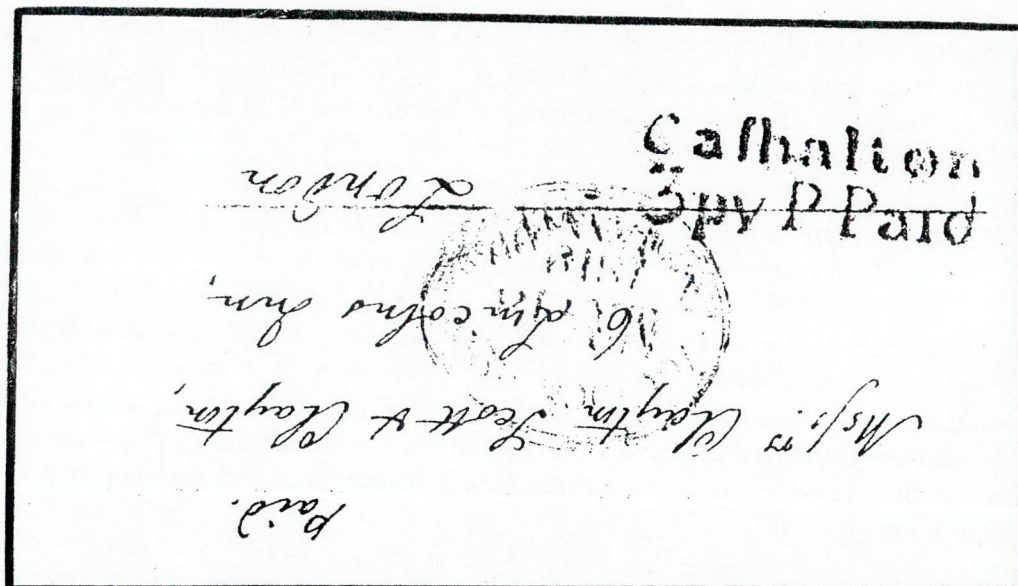 Cafhalton
3py P Paid
Paid.
Messrs Clayton Scott & Clayton,
Lincolns Inn,
London